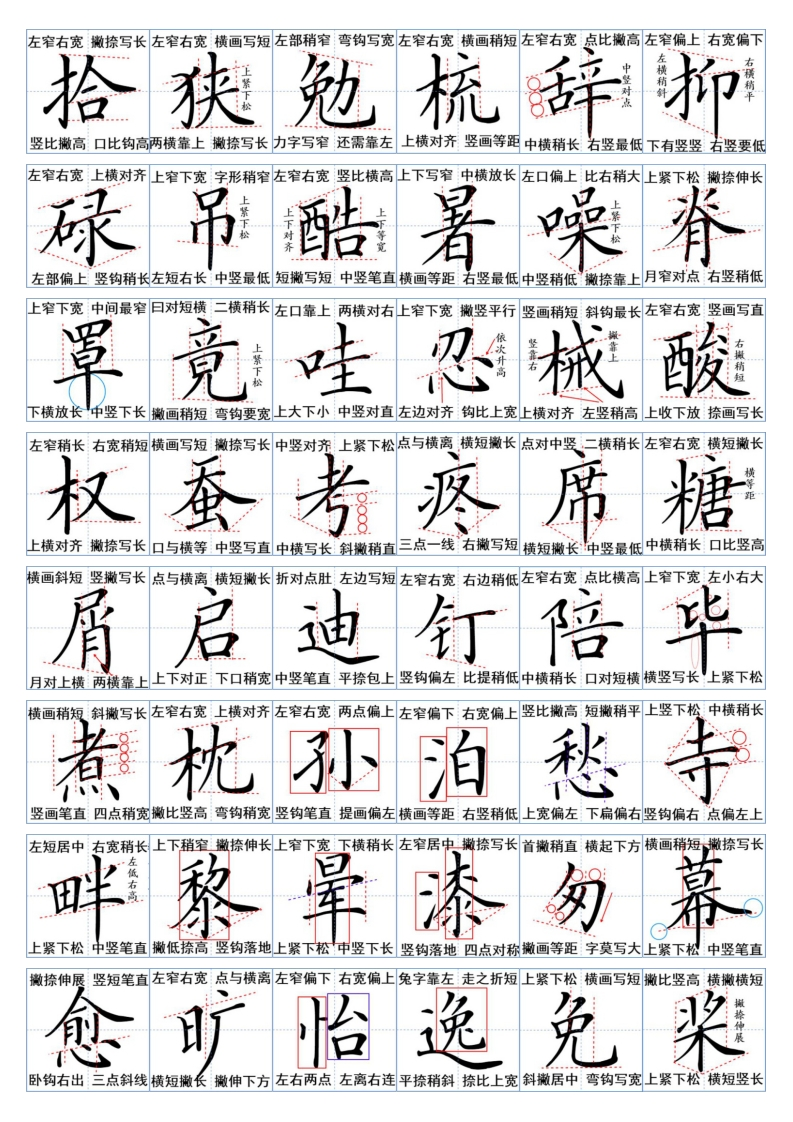 左窄右宽 撇捺写长
拾
竖比撇高 口比钩高
左窄右宽 横画写短
狭
上紧下松
两横靠上 撇捺写长
左部稍窄 弯钩写宽
勉
力字写窄 还需靠左
左窄右宽 横画稍短
梳
上横对齐 竖画等距
左窄右宽 点比撇高
辞
中竖对点
中横稍长 右竖最低
左窄偏上 右宽偏下
左横稍斜
抑
右横稍平
下有竖竖 右竖要低
左窄右宽 上横对齐
碌
左部偏上 竖钩稍长
上窄下宽 字形稍窄
吊
上紧下松
左短右长 中竖最低
左窄右宽 竖比横高
上下对齐
酷
上下等宽
短撇写短 中竖笔直
上下写窄 中横放长
暑
横画等距 右竖最低
左口偏上 比右稍大
噪
上紧下松
中竖稍低 撇捺靠上
上紧下松 撇捺伸长
脊
月窄对点 右竖稍低
上窄下宽 中间最窄
罩
下横放长 中竖下长
曰对短横 二横稍长
竟
上紧下松
撇画稍短 弯钩要宽
左口靠上 两横对右
哇
上大下小 中竖对直
上窄下宽 撇竖平行
忍
依次升高
左边对齐 钩比上宽
竖画稍短 斜钩最长
竖靠右
械
撇靠上
上横对齐 左竖稍高
左窄右宽 竖画写直
酸
右撇稍短
上收下放 捺画写长
左窄稍长 右宽稍短
权
上横对齐 撇捺写长
横画写短 撇捺写长
蚕
口与横等 中竖写直
中竖对齐 上紧下松
考
中横写长 斜撇稍直
点与横离 横短撇长
疼
三点一线 右撇写短
点对中竖 二横稍长
席
横短撇长 中竖最低
左窄右宽 横短撇长
糖
横等距
中横稍长 口比竖高
横画斜短 竖撇写长
屑
月对上横 两横靠上
点与横离 横短撇长
启
上下对正 下口稍宽
折对点肚 左边写短
迪
中竖笔直 平捺包上
左窄右宽 右边稍低
钉
竖钩偏左 比提稍低
左窄右宽 点比横高
陪
中横稍长 口对短横
上窄下宽 左小右大
毕
横竖写长 上紧下松
横画稍短 斜撇写长
煮
竖画笔直 四点稍宽
左窄右宽 上横对齐
枕
撇比竖高 弯钩稍宽
左窄右宽 两点偏上
孙
竖钩笔直 提画偏左
左窄偏下 右宽偏上
泊
横画等距 右竖稍低
竖比撇高 短撇稍平
愁
上宽偏左 下扁偏右
上竖下松 中横稍长
寺
竖钩偏右 点偏左上
左短居中 右宽稍长
畔
左低右高
上紧下松 中竖笔直
上下稍窄 撇捺伸长
黎
撇低捺高 竖钩落地
上窄下宽 下横稍长
晕
上紧下松 中竖下长
左窄居中 撇捺写长
漆
竖钩落地 四点对称
首撇稍直 横起下方
匆
撇画等距 字莫写大
横画稍短 撇捺写长
幕
上紧下松 中竖笔直
撇捺伸展 竖短笔直
愈
卧钩右出 三点斜线
左窄右宽 点与横离
旷
横短撇长 撇伸下方
左窄偏下 右宽偏上
怡
左右两点 左离右连
兔字靠左 走之折短
逸
平捺稍斜 捺比上宽
上紧下松 横画写短
免
斜撇居中 弯钩写宽
撇比竖高 横撇横短
桨
撇捺伸展
上紧下松 横短竖长